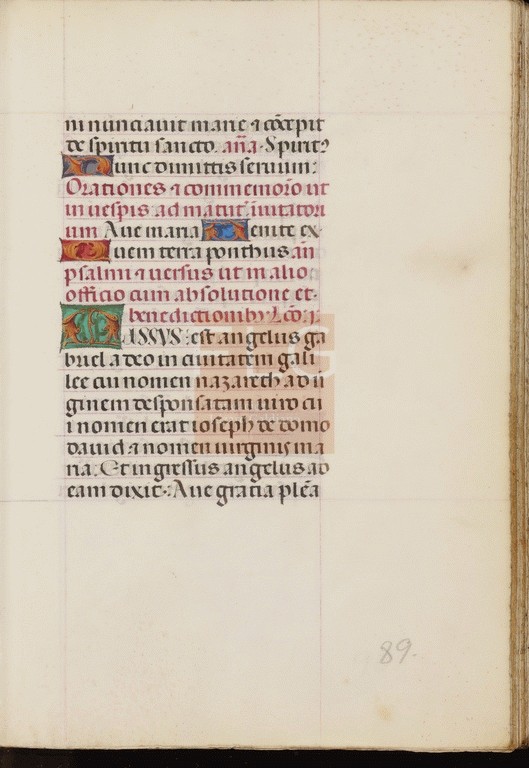 ni nunciavit marie ⁊ cōcepit
de spiritu sancto. an̄a. Spirit⁹
Nunc dimittis servum:
Orationes ⁊ commemorō ut
in vesp̄is ad matut̄ īvitatori
um Ave maria Venite ex
Quem terra ponthus an̄
psalmi ⁊ versus ut in alio
officio cum absolutione et
benedictionib⁹ Lcō: j:
MISSUS: est angelus ga
briel a deo in civitatem gali
lee cui nomen nazareth ad ū
ginem desponsatam viro cu
i nomen erat ioseph de domo
david ⁊ nomen virginis ma
ria: Et ingressus angelus ad
eam dixit: Ave gracia plēa
89.